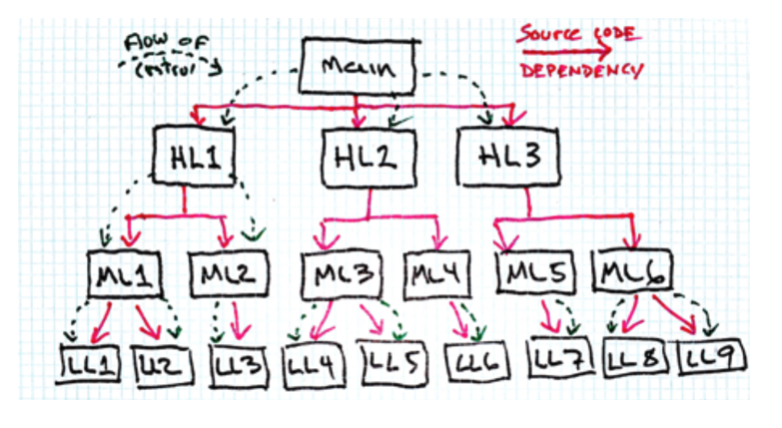 Flow of
Control
Source CODE
DEPENDENCY
Main
HL1 HL2 HL3
ML1 ML2 ML3 ML4 ML5 ML6
LL1 LL2 LL3 LL4 LL5 LL6 LL7 LL8 LL9